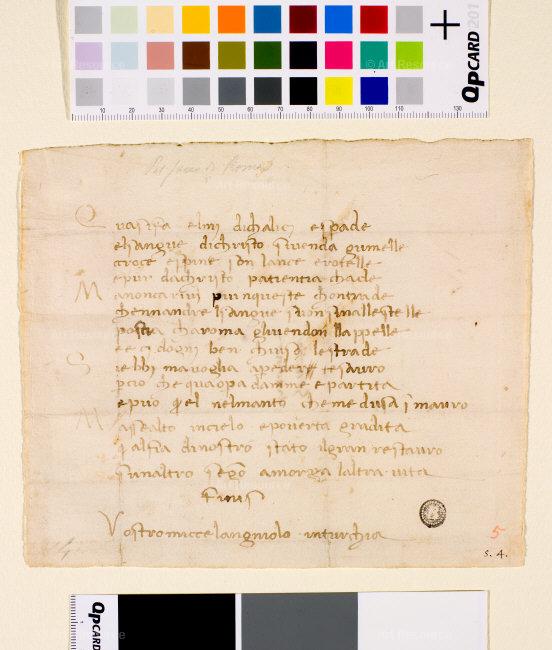 OpCARD 201
10 20 30 40 50 60 70 80 90 100 110 130
© Art Resource
Qua sifa elmi dichalici e spade
elsangue dichristo siuenda giumelle
croce espine son lance erotelle
epur dachristo patientia chade
Ma noncarivi piu nqueste chontrade
chennandre lsangue suo nsinallestelle
poscia charoma gliuendon llappelle
ecci dogni ben chiuso lestrade
Sie bbi ma uoglia apeder tesauro
pcio che qua opa damme e partita
e puo quel nelmanto che medusa i mauro
Ma sealto incielo epouerta gradita
qualfia dinostro stato ilgran restauro
sunaltro segno amorza laltra uita
Finis
Vostro miccelangniolo inturchia
5
s. 4.
OpCARD
Art Resource